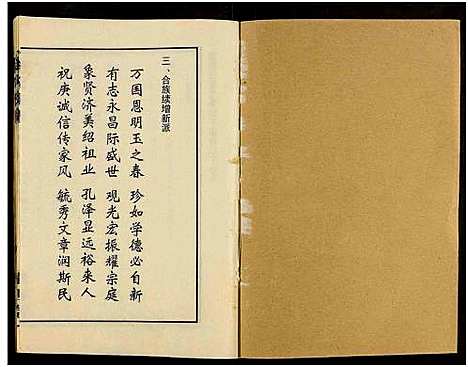 三、合族续增新派
万国恩明玉之春 珍如学德必自新
有志永昌际盛世 观光宏振耀宗庭
象贤济美绍祖业 孔泽显远裕来人
祝庚诚信传家风 毓秀文章润斯民